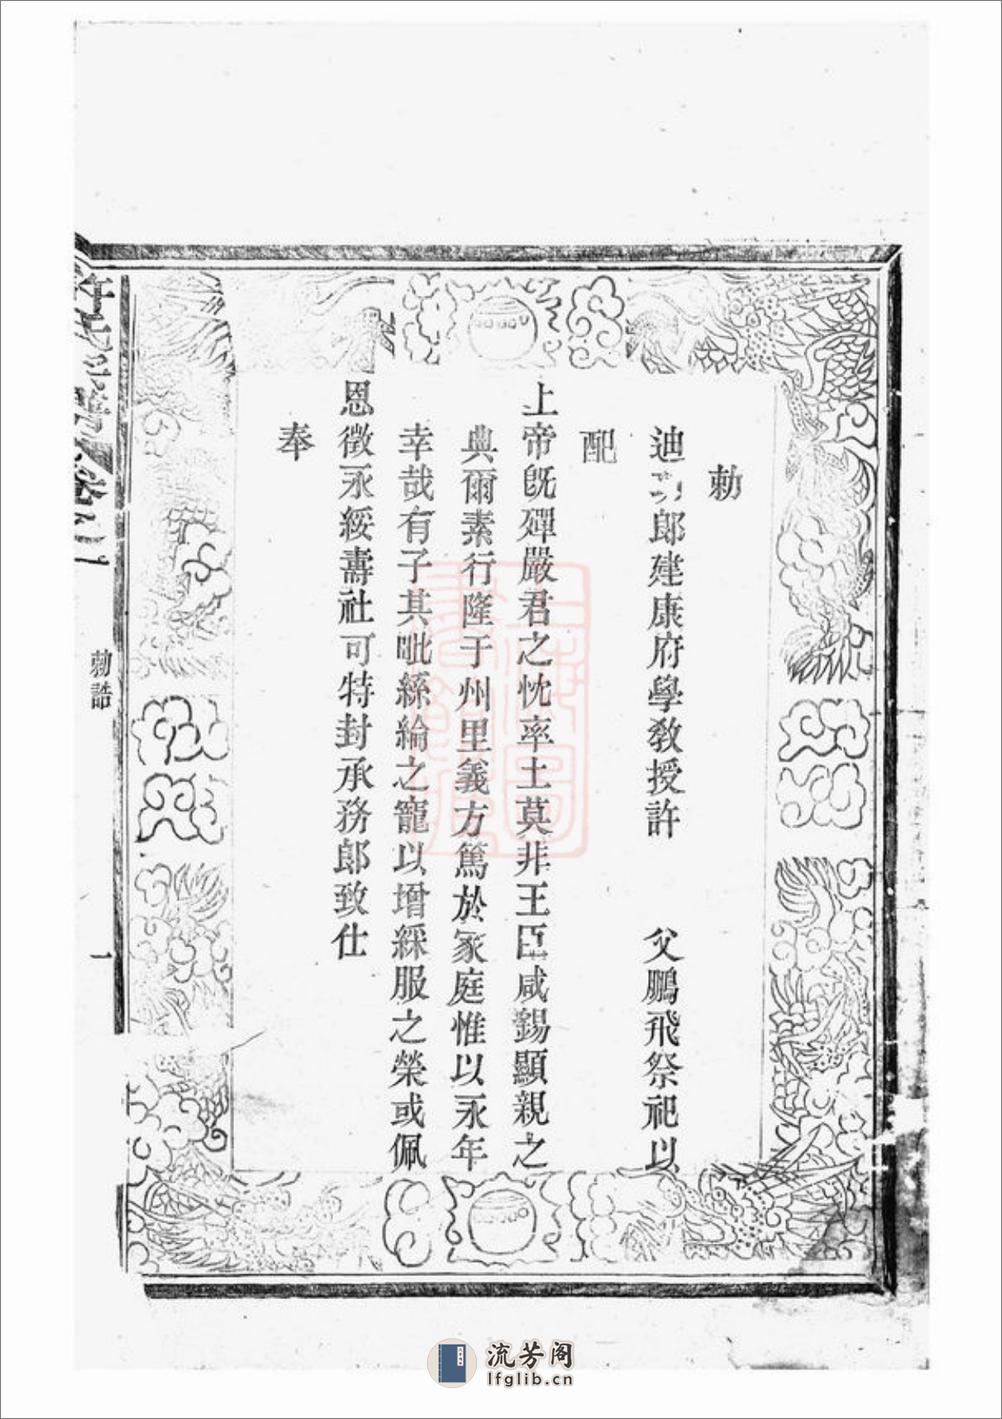 勅
迪功郎建康府學教授許　父鵬飛祭祀以
配
上帝旣殫嚴君之忱率土莫非王臣咸錫顯親之
典爾素行隆于州里義方篤於家庭惟以永年
幸哉有子其毗絲綸之寵以增綵服之榮或佩
恩徵永綏壽社可特封承務郎致仕
奉
許氏
勅誥
一
流芳阁
lfglib.cn